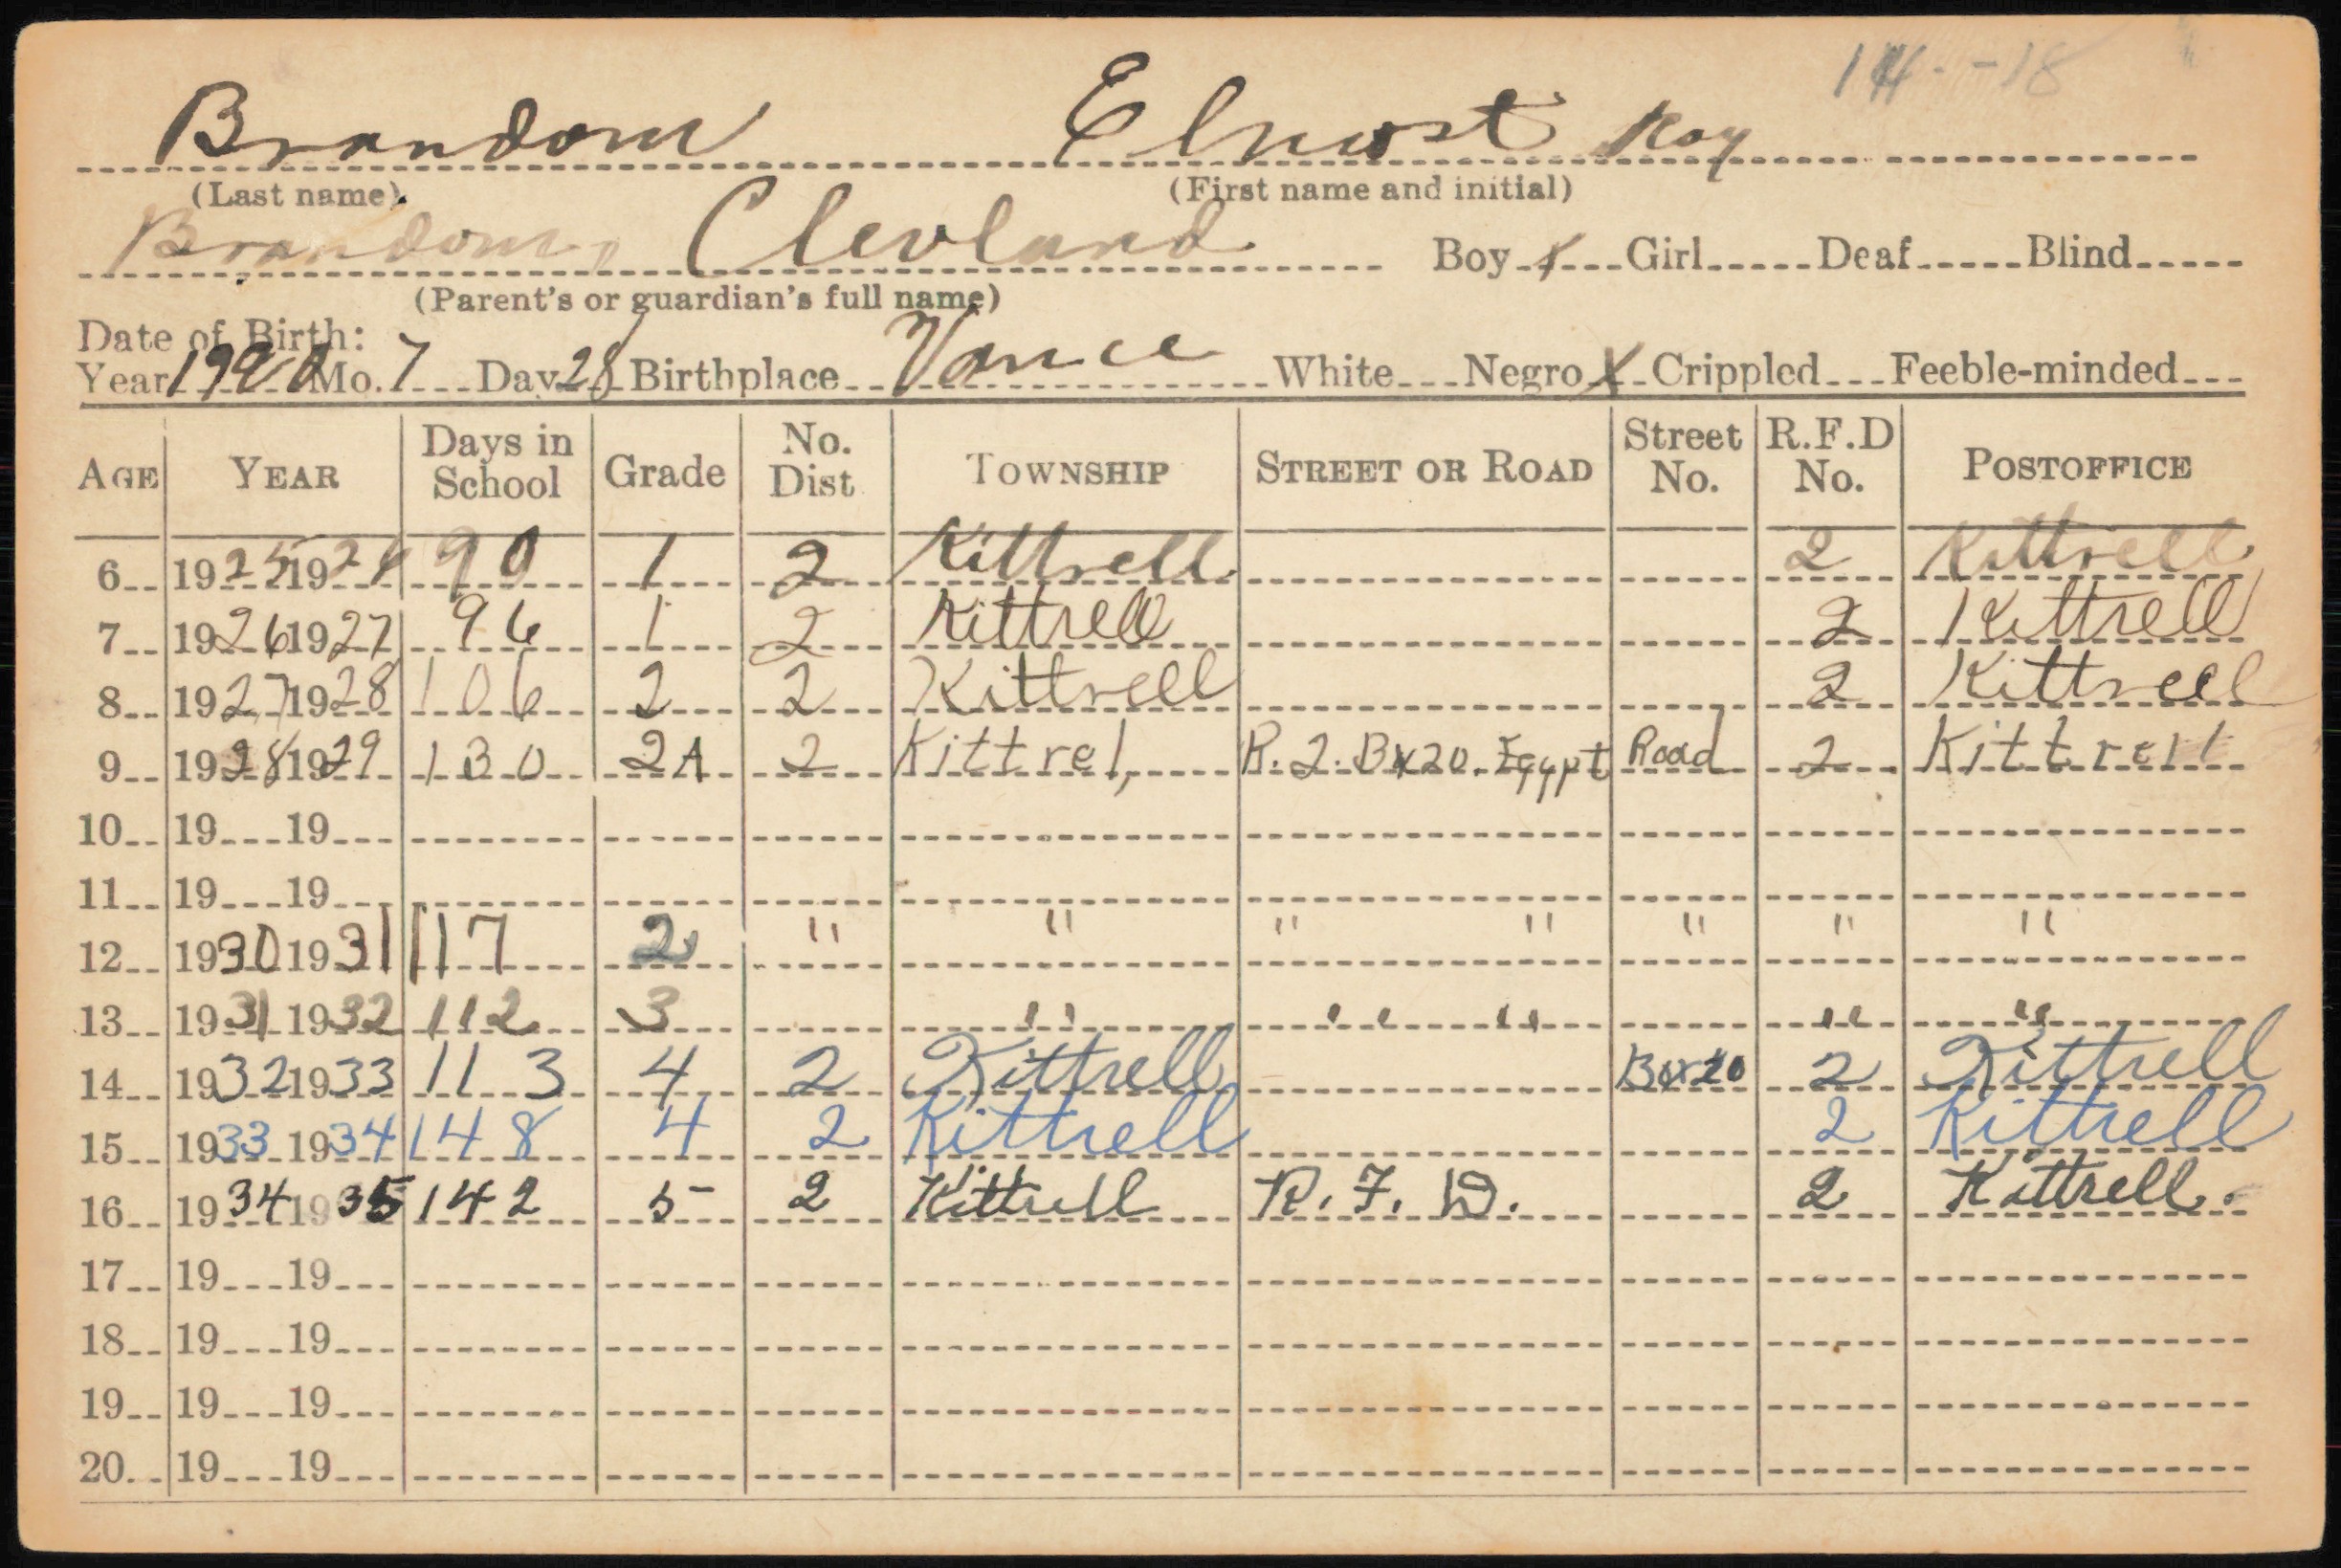 14 - -18
Brandom Elnost Roy
(Last name) (First name and initial)
Brandom, Clevland Boy x Girl Deaf Blind
(Parent's or guardian's full name)
Date of Birth:
Year 1920 Mo. 7 Day 28 Birthplace Vance White Negro X Crippled Feeble-minded
AGE YEAR Days in School Grade No. Dist TOWNSHIP STREET OR ROAD Street No. R.F.D No. POSTOFFICE
6 1925 1926 90 1 2 Kittrell 2 Kittrell
7 1926 1927 96 1 2 Kittrell 2 Kittrell
8 1927 1928 106 2 2 Kittrell 2 Kittrell
9 1928 1929 130 2A 2 Kittrel, R. 2. Bx 20. Egypt Road 2 Kittrell
10 19 19
11 19 19
12 1930 1931 117 2 " " " " " " "
13 1931 1932 112 3 " " " " "
14 1932 1933 113 4 2 Kittrell Box 20 2 Kittrell
15 1933 1934 148 4 2 Kittrell 2 Kittrell
16 1934 1935 142 5 2 Kittrell R. F. D. 2 Kittrell.
17 19 19
18 19 19
19 19 19
20 19 19